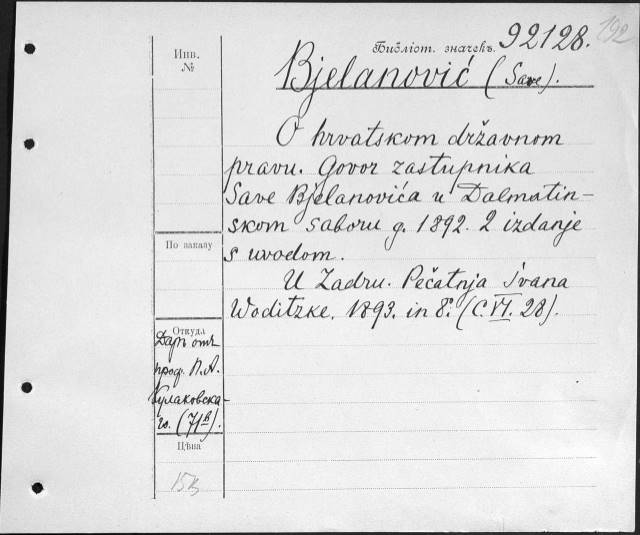 192
Инв. №
Библіот. значекъ. 92128.
Bjelanović (Save).
O hrvatskom državnom
pravu. Govor zastupnika
Save Bjelanovića u Dalmatin-
skom saboru g. 1892. 2 izdanje
s uvodom.
U Zadru. Pečatnja Ivana
Woditzke. 1893. in 8º. (C. VI. 28).
По заказу
Откуда
Даръ отъ
проф. П. А.
Кулаковска-
го. (71в).
Цѣна